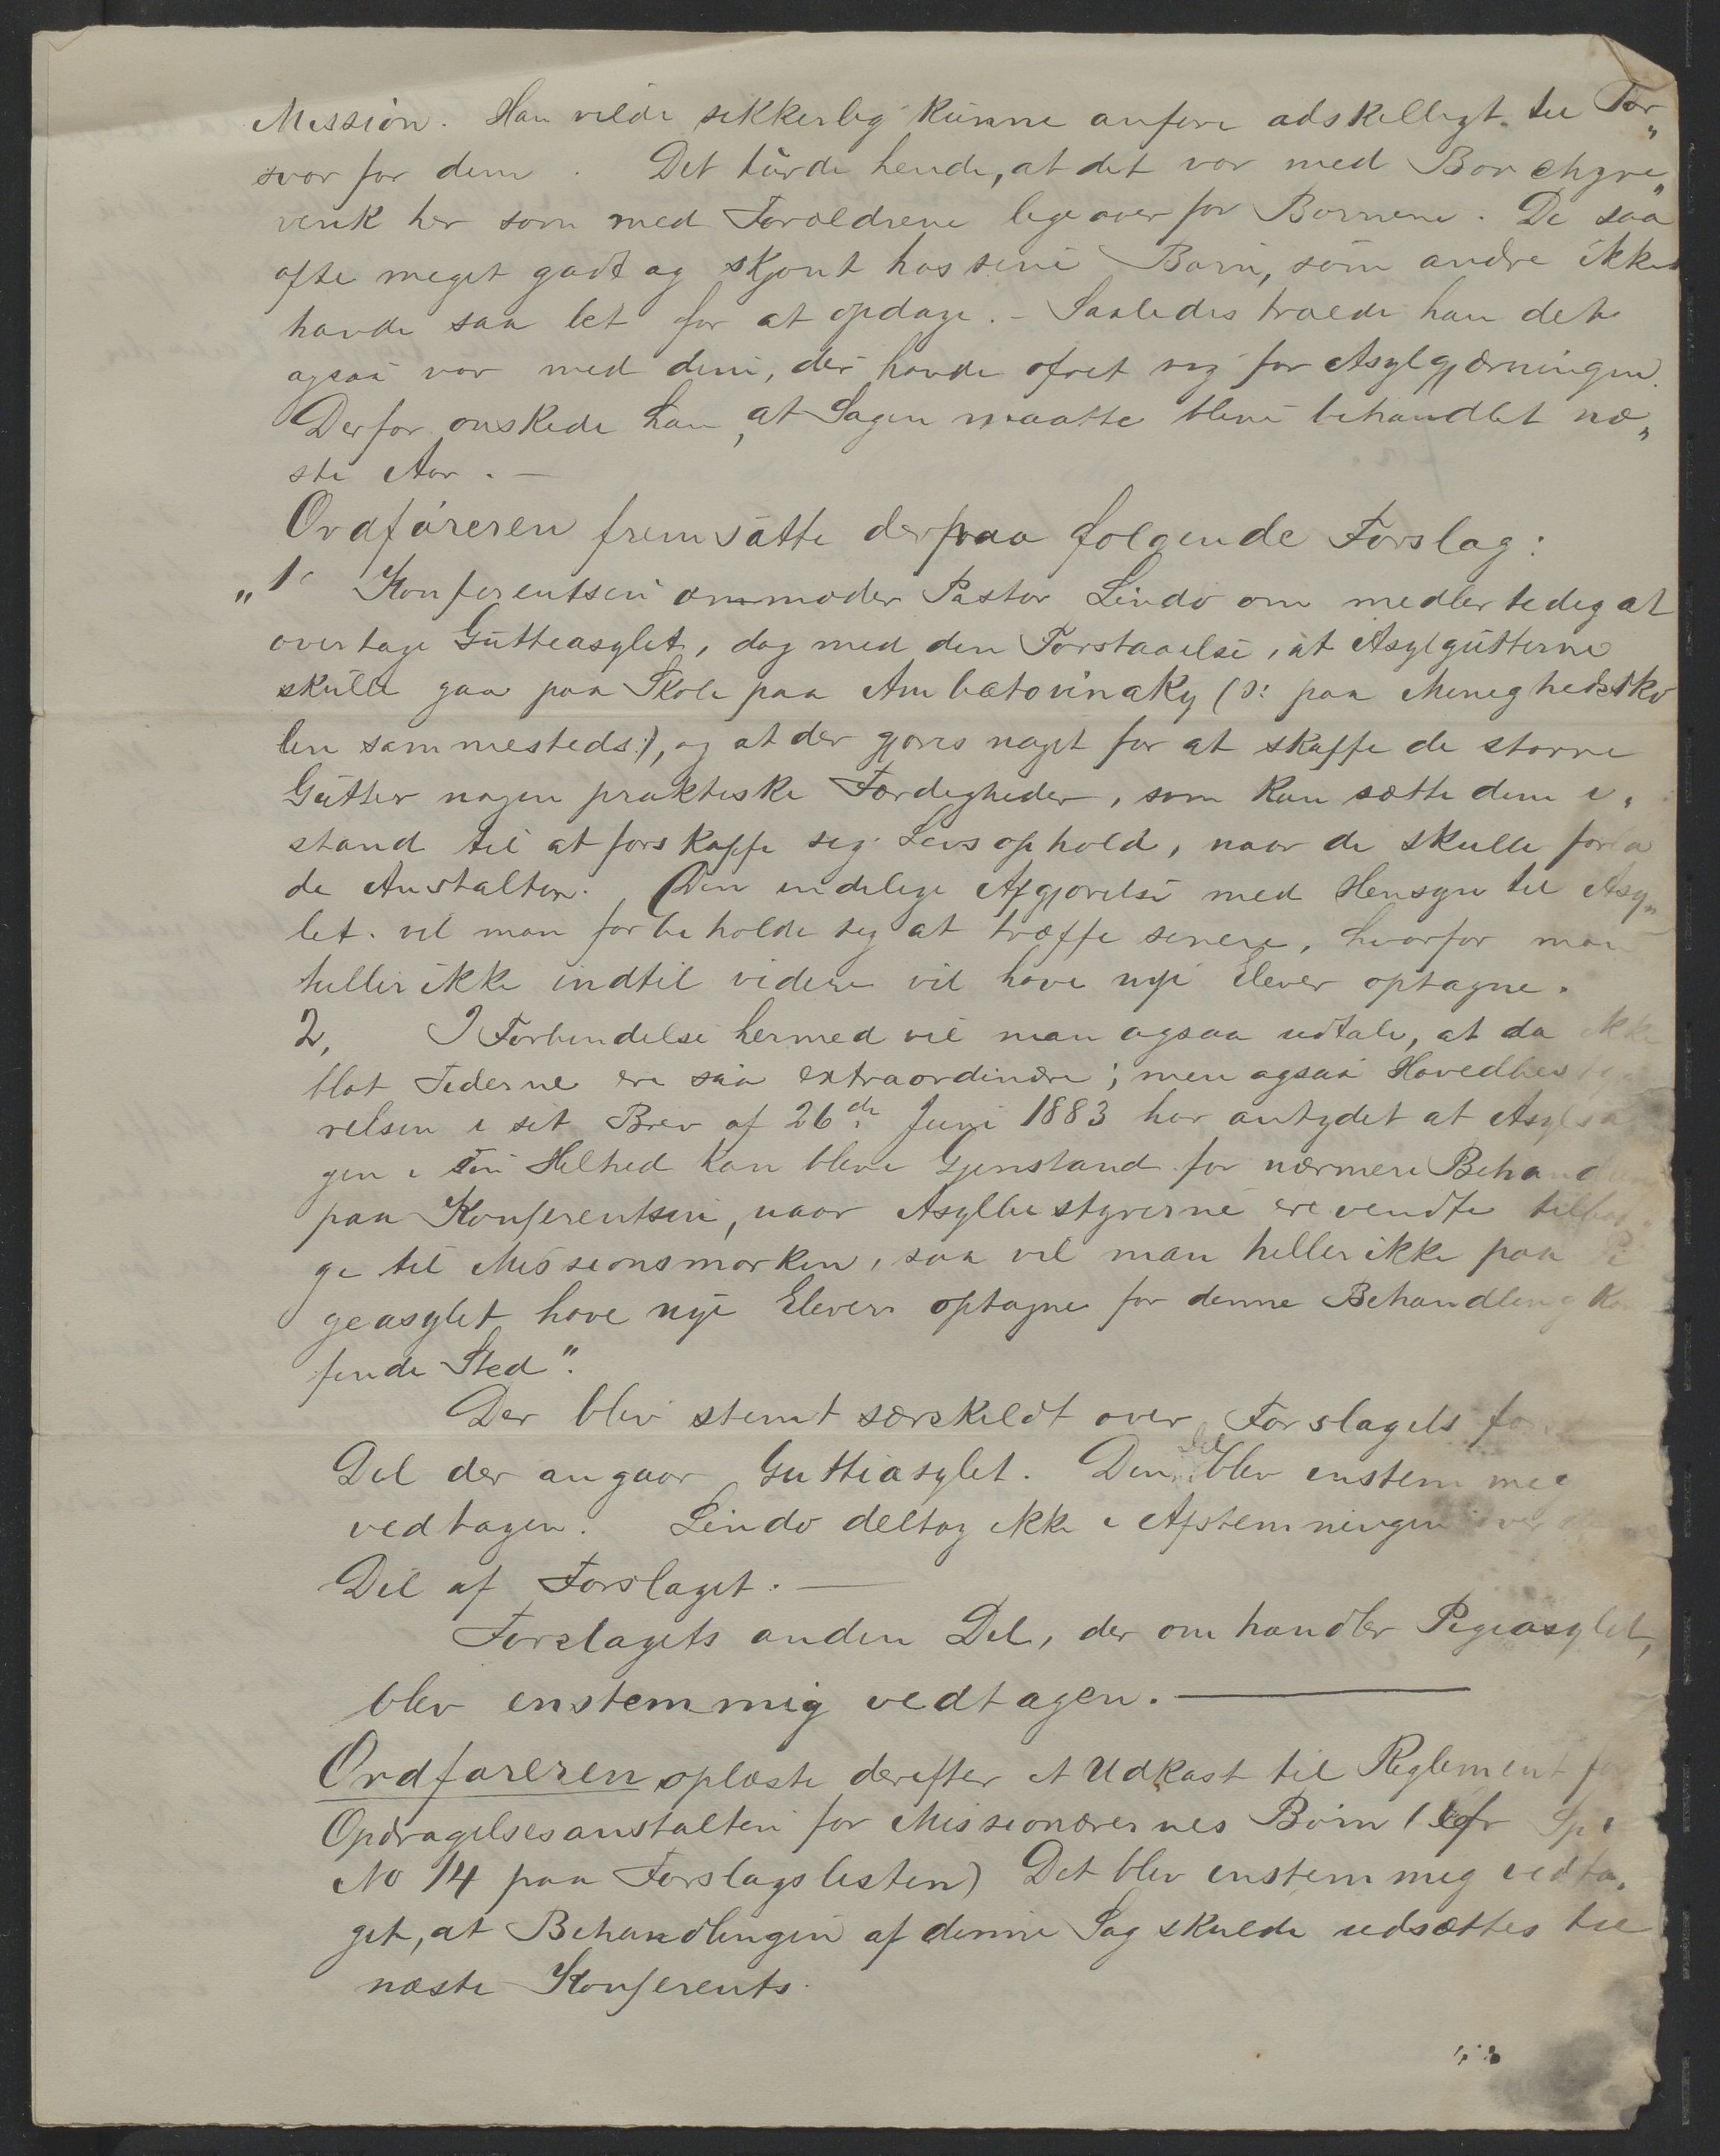 Mission. Han vilde sikkerlig kunne anføre adskilligt til For„
svar for dem. Det turde hende, at det var med Borchgre„
vink her som med Forældrene ligeover for Børnene. De saa
ofte meget godt og skjønt hos sine Børn, som andre ikke
havde saa let for at opdage. - Saaledes troede han det
ogsaa var med dem, der havde ofret sig for Asylgjærningen.
Derfor ønskede han, at Sagen maatte blive behandlet næ„
ste Aar. —
Ordføreren fremsatte derpaa følgende Forslag:
„1. Konferentsen anmoder Pastor Lindø om midlertidig at
overtage Gutteasylet, dog med den Forstaaelse, at Asylgutterne
skulle gaa paa Skole paa Ambatovinaky (ɔ: paa Menighedssko
len sammesteds:), og at der gjøres noget for at skaffe de større
Gutter nogen praktiske Færdigheder, som kan sætte dem i„
stand til at forskaffe sig Livsophold, naar de skulle forla
de Anstalten. Den endelige Afgjørelse med Hensyn til Asy„
let vil man forbeholde sig at træffe senere, hvorfor man
heller ikke indtil videre vil have nye Elever optagne.
2, I Forbindelse hermed vil man ogsaa udtale, at da ikke
blot Tiderne ere saa extraordinære; men ogsaa Hovedbesty
relsen i sit Brev af 26de Juni 1883 har antydet at Asylsa
gen i sin Helhed kan blive Gjenstand for nærmere Behandling
paa Konferentsen, naar Asylbestyrerne ere vendte tilba„
ge til Missionsmarken, saa vil man heller ikke paa Pi
geasylet have nye Elever optagne før denne Behandling kan
finde Sted".
Der blev stemt særskildt over Forslagets første
Del der angaar Gutteasylet. Den Del blev enstemmig
vedtagen. Lindø deltog ikke i Afstemningen over denne
Del af Forslaget. —
Forslagets anden Del, der omhandler Pigeasylet,
blev enstemmig vedtagen. —
Ordføreren oplæste derefter et Udkast til Reglement for
Opdragelsesanstalten for Missionærernes Børn (cfr Sp
No 14 paa Forslagslisten) Det blev enstemmig vedta„
get, at Behandlingen af denne Sag skulde udsættes til
næste Konferents.